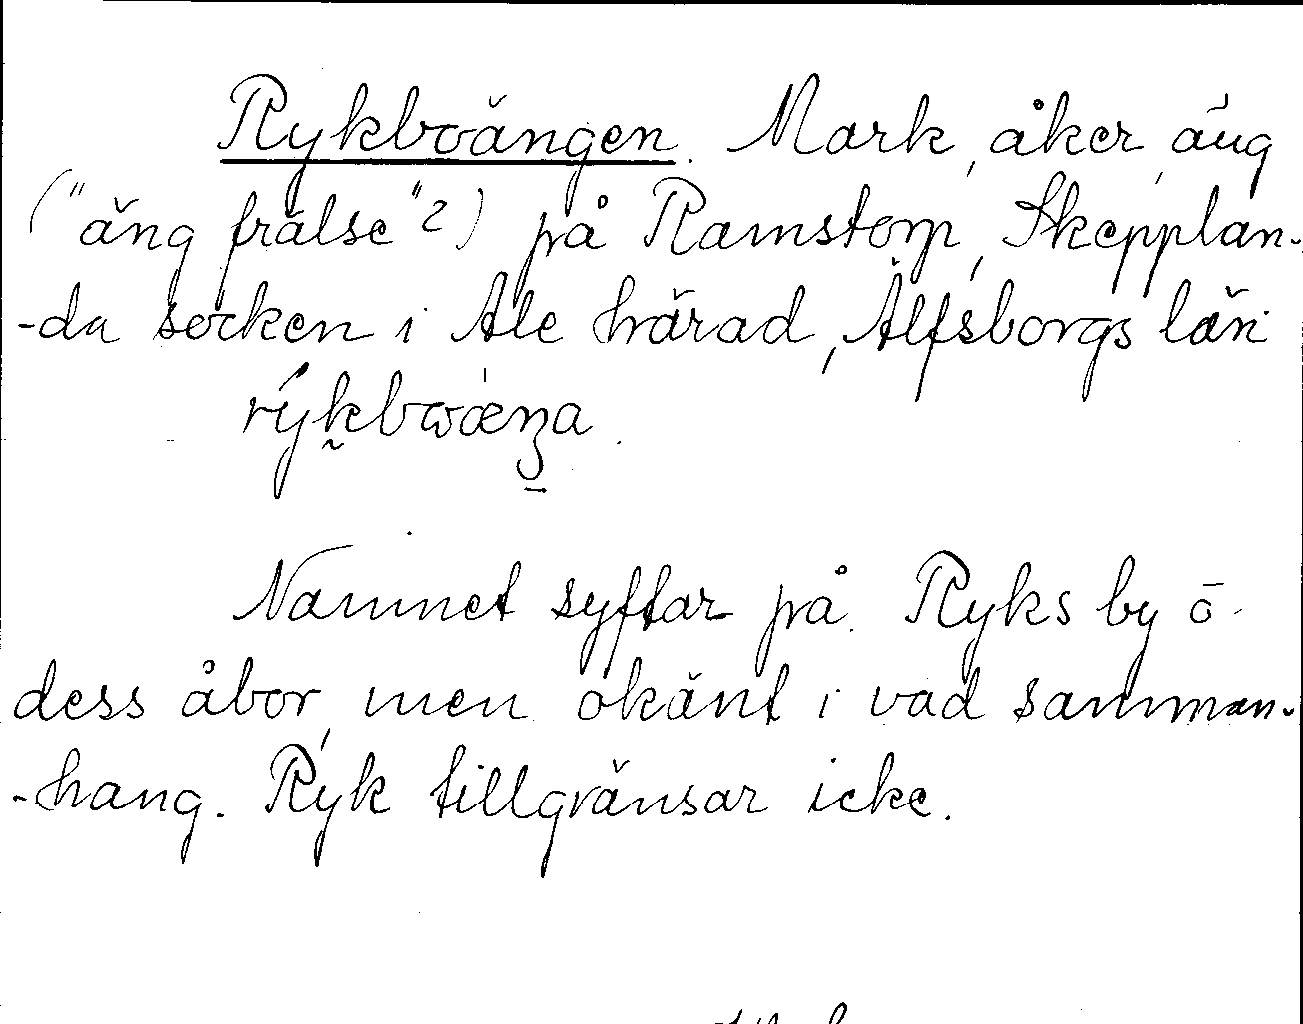 Rykbvängen. Mark, åker, äng
("äng frälse"?) på Ramstorp, Skepplan-
-da socken i Ale härad, Älfsborgs län
Namnet syftar på Ryks by o.
dess åbor, men okänt i vad samman-
-hang. Ryk tillgränsar icke.